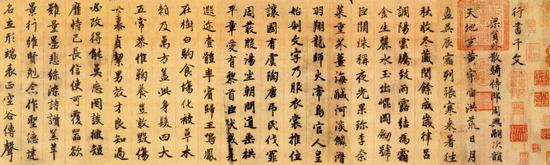 行書千文
梁員外散騎侍郎周興嗣次韻
天地玄黃宇宙洪荒日月
盈昃辰宿列張寒來暑往
秋收冬藏閏餘成歲律呂
調陽雲騰致雨露結為霜
金生麗水玉出崐崗劍號
巨闕珠稱夜光果珍李柰
菜重芥薑海鹹河淡鱗潛
羽翔龍師火帝鳥官人皇
始制文字乃服衣裳推位
讓國有虞陶唐弔民伐罪
周發殷湯坐朝問道垂拱
平章愛育黎首臣伏戎羌
遐邇壹體率賓歸王鳴鳳
在樹白駒食場化被草木
賴及萬方蓋此身髮四大
五常恭惟鞠養豈敢毀傷
女慕貞潔男效才良知過
必改得能莫忘罔談彼短
靡恃己長信使可覆器欲
難量墨悲絲染詩讚羔羊
景行維賢剋念作聖德建
名立形端表正空谷傳聲